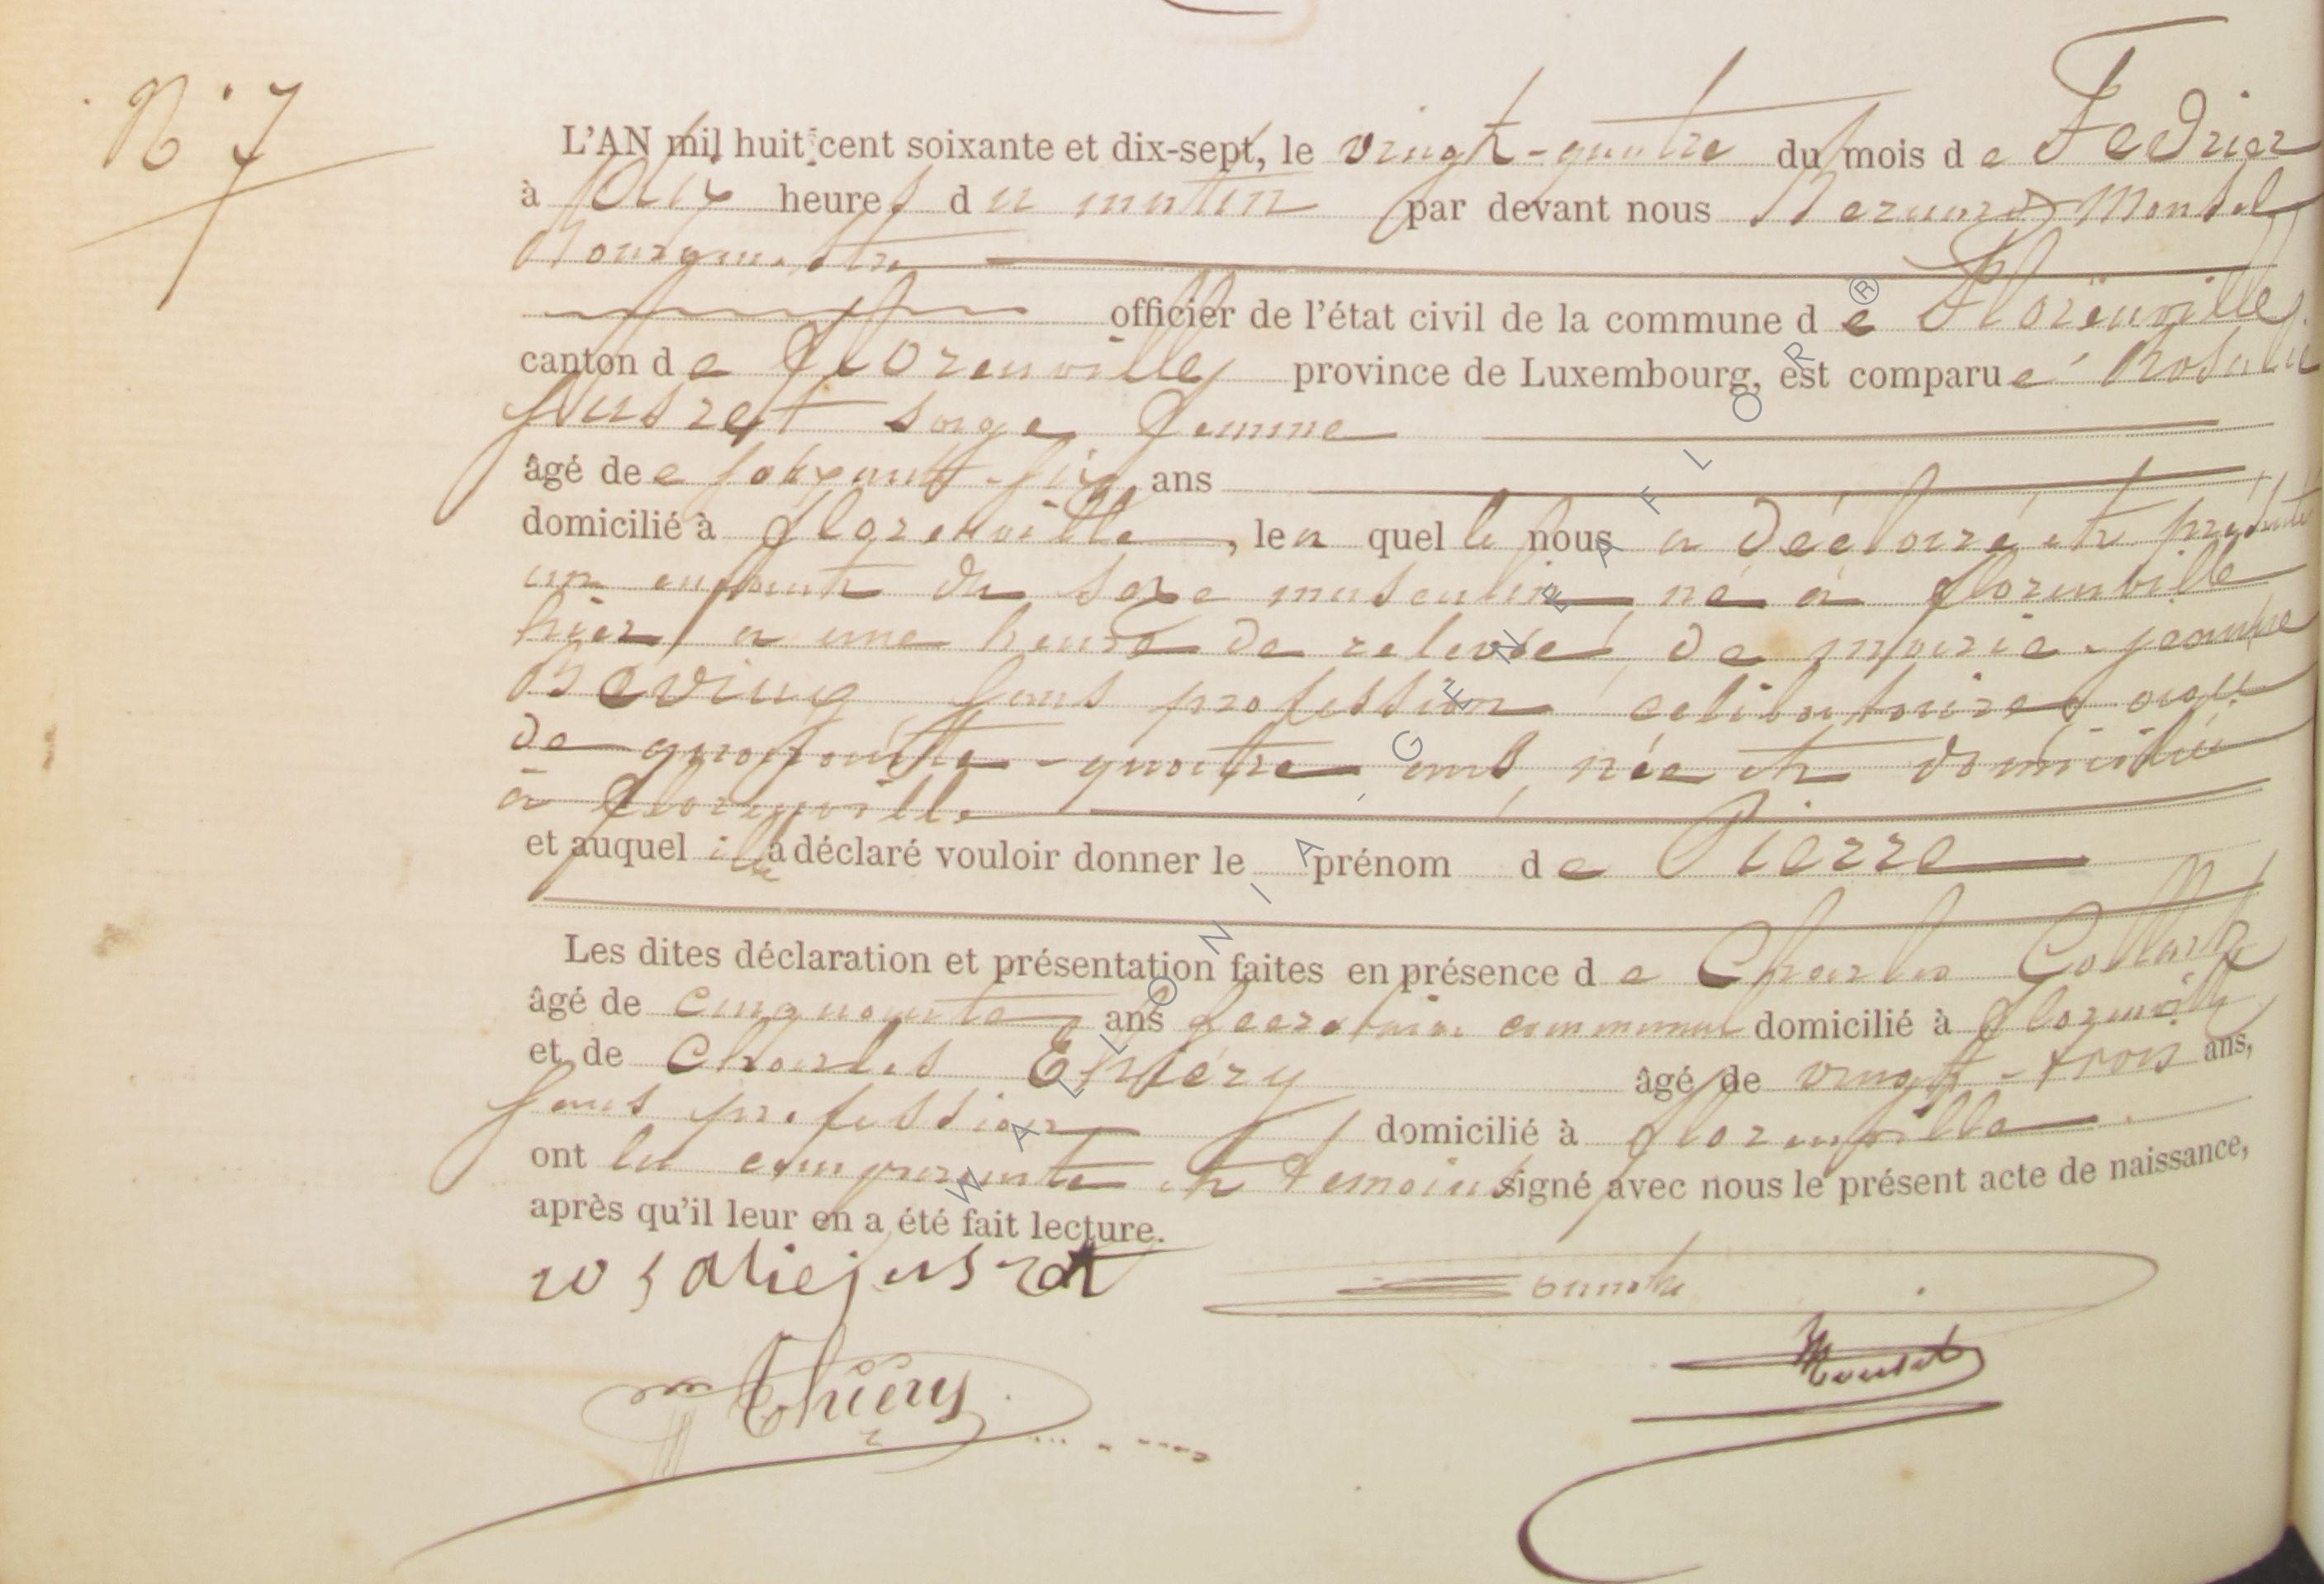 N° 7
L'AN mil huit cent soixante et dix-sept, le vingt-quatre du mois de Fevrier
à dix heures du matin par devant nous Bernard Monsel
Bourgmestre
officier de l'état civil de la commune de Florenville
canton de Florenville province de Luxembourg, est comparue Rosalie
Jusret sage femme
âgé dee soixante-six ans
domicilié à Florenville, lea quelle nous a déclaré et présenté
un enfant du sexe masculin né à Florenville
hier a une heure de relevée, de marie-jeanne
Beving sans profession celibataire agée
de quarante-quatre ans, née et domiciliée
à Florenville
et auquel ille a déclaré vouloir donner le prénom de Pierre
Les dites déclaration et présentation faites en présence de Charles
âgé de cinquante ans secretaire communal domicilié à Florenville
et de Charles Thiéry âgé de vingt-trois ans,
sans profession domicilié à Florenville
ont la comparante et temoins signé avec nous le présent acte de naissance,
après qu'il leur en a été fait lecture.
rosalie jusret
Thiery
Monsel
WALLONIA - GENEAFLOR®